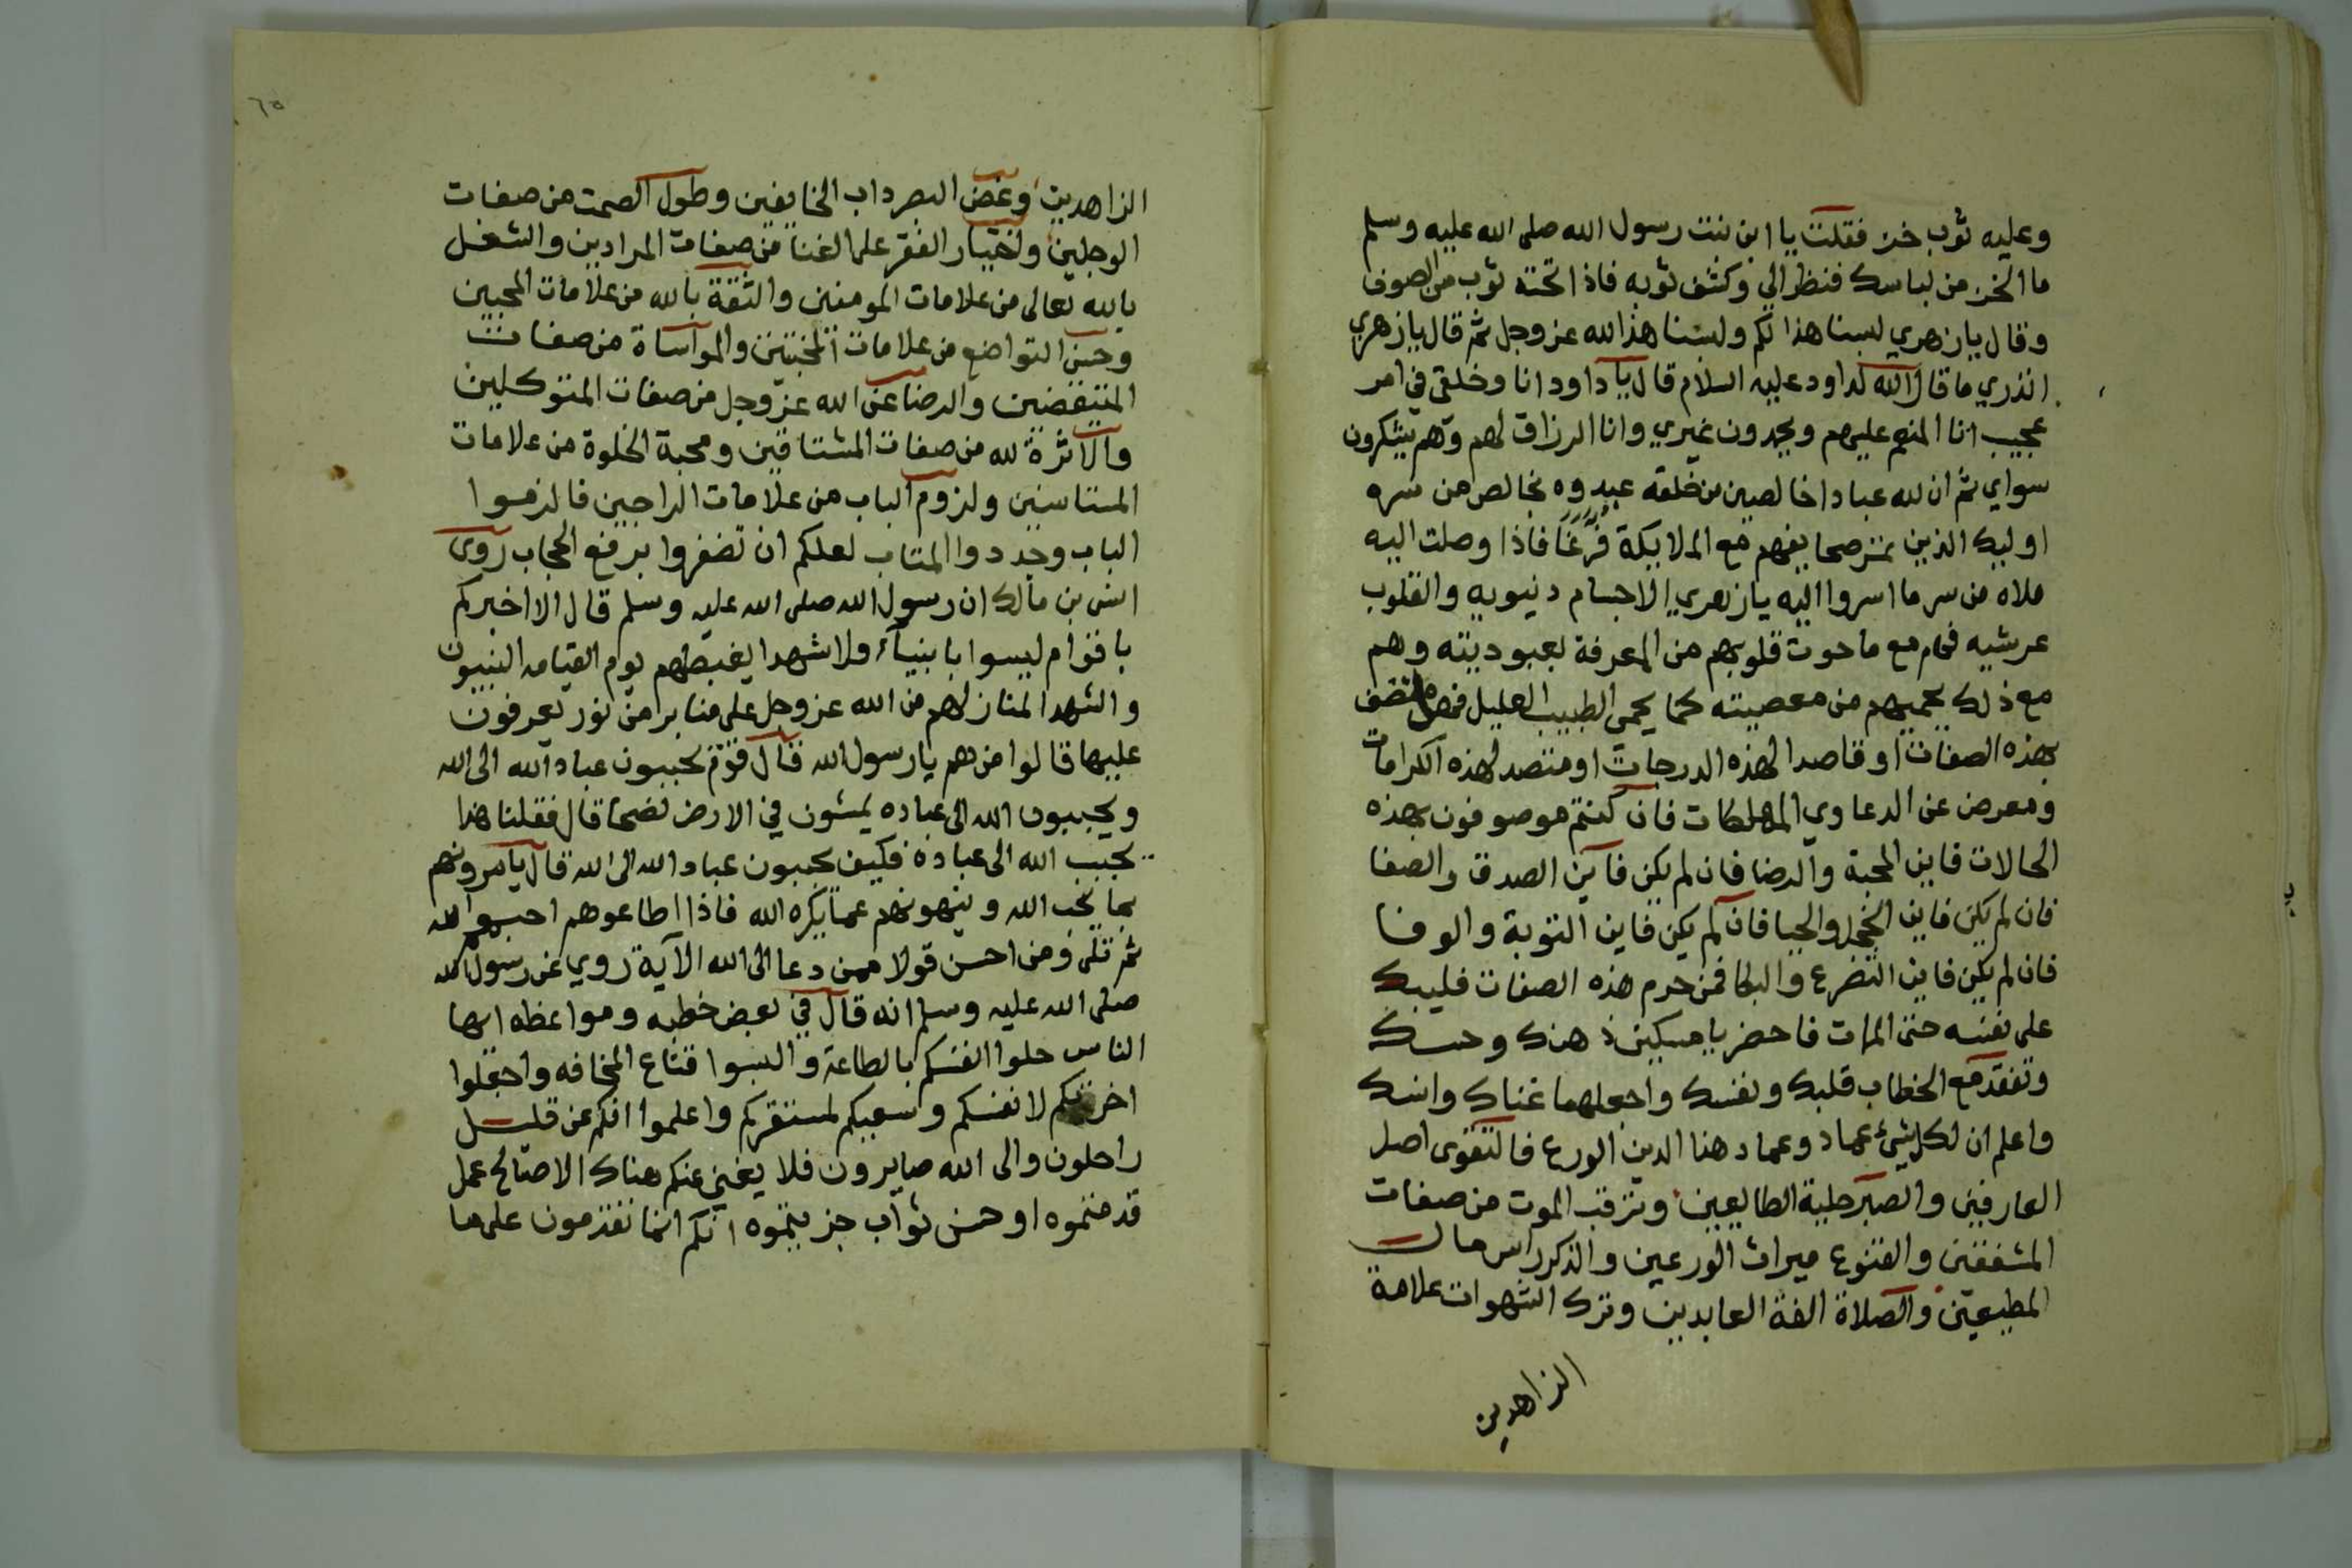 وعليه ثوب خز فقلت يا ابن بنت رسول الله صلى الله عليه وسلم
ما الخز من لباسك فنظر الي وكشف ثوبه فاذا تحته ثوب من الصوف
وقال يا زهري لبسنا هذا لكم ولبسنا هذا لله عز وجل ثم قال يا زهري
اتدري ما قال الله لداود عليه السلام قال يا داود انا وخلقي في امر
عجيب انا المنعم عليهم ويعبدون غيري وانا الرزاق لهم وهم يشكرون
سواي ثم ان لله عبادا خالصين من خلقه عبدوه بخالص من سره
اوليك الذين تمر صحايفهم مع الملايكة فرغا فاذا وصلت اليه
ملاه من سر ما اسروا اليه يا زهري الاجسام دنيويه والقلوب
عرشيه فهم مع ما حوت قلوبهم من المعرفة بعبوديته وهم
مع ذلك يحميهم من معصيته كما يحمي الطبيب العليل فهل متصف
بهذه الصفات او قاصدا لهذه الدرجات او متصد لهذه الكرامات
ومعرض عن الدعاوي المهلكات فان كنتم موصوفون بهذه
الحالات فاين المحبة والرضا فان لم يكن فاين الصدق والصفا
فان لم يكن فاين الخجل والحيا فان لم يكن فاين التوبة والوفا
فان لم يكن فاين التضرع والبكا فمن حرم هذه الصفات فليبك
على نفسه حتى الممات فاحضر يا مسكين ذهنك وحسك
وتفقد مع الخطاب قلبك ونفسك واجعلهما غناك وانسك
واعلم ان لكل شيء عماد وعماد هذا الدين الورع فالتقوى اصل
العارفين والصبر حلية الطايعين وترقب الموت من صفات
المشفقين والقنوع ميراث الورعين والذكر راس مال
المطيعين والصلاة الفة العابدين وترك الشهوات علامة
الزاهدين
٦٥
الزاهدين وغض البصر داب الخايفين وطول الصمت من صفات
الوجلين واختيار الفقر على الغنا من صفات المرادين والشغل
بالله تعالى من علامات المومنين والثقة بالله من علامات المحبين
وحسن التواضع من علامات المخبتين والمواساة من صفات
المتيقضين والرضا عن الله عز وجل من صفات المتوكلين
والاثرة لله من صفات المشتاقين ومحبة الخلوة من علامات
المستانسين ولزوم الباب من علامات الراجين فالزموا
الباب وجددوا المتاب لعلكم ان تضفروا برفع الحجاب روى
انس بن مالك ان رسول الله صلى الله عليه وسلم قال الا اخبركم
باقوام ليسوا بانبياء ولا شهدا يغبطهم يوم القيامه النبيون
والشهدا لمنازلهم من الله عز وجل على منابر من نور يعرفون
عليها قالوا من هم يا رسول الله قال قوم يحببون عباد الله الى الله
ويحببون الله الى عباده يمشون في الارض نصحا قال فقلنا هذا
يحبب الله الى عباده فكيف يحببون عباد الله الى الله قال يامرونهم
بما يحب الله وينهونهم عما يكره الله فاذا اطاعوهم احبهم الله
ثم تلى ومن احسن قولا ممن دعا الى الله الآية روي عن رسول الله
صلى الله عليه وسلم انه قال في بعض خطبه ومواعظه ايها
الناس حلوا انفسكم بالطاعة والبسوا قناع المخافه واجعلوا
اخرتكم لانفسكم وسعيكم لمستقركم واعلموا انكم عن قليل
راحلون والى الله صايرون فلا يغني عنكم هناك الا صالح عمل
قدمتموه او حسن ثواب جزيتموه انكم انما تقدمون على ما